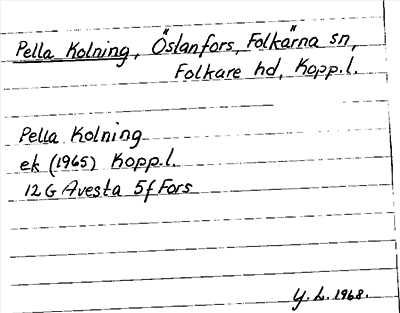 Pella Kolning, Öslanfors, Folkärna sn,
Folkare hd, Kopp.l.
Pella Kolning
ek (1965) Kopp.l.
12G Avesta 5f Fors
Y. L. 1968.